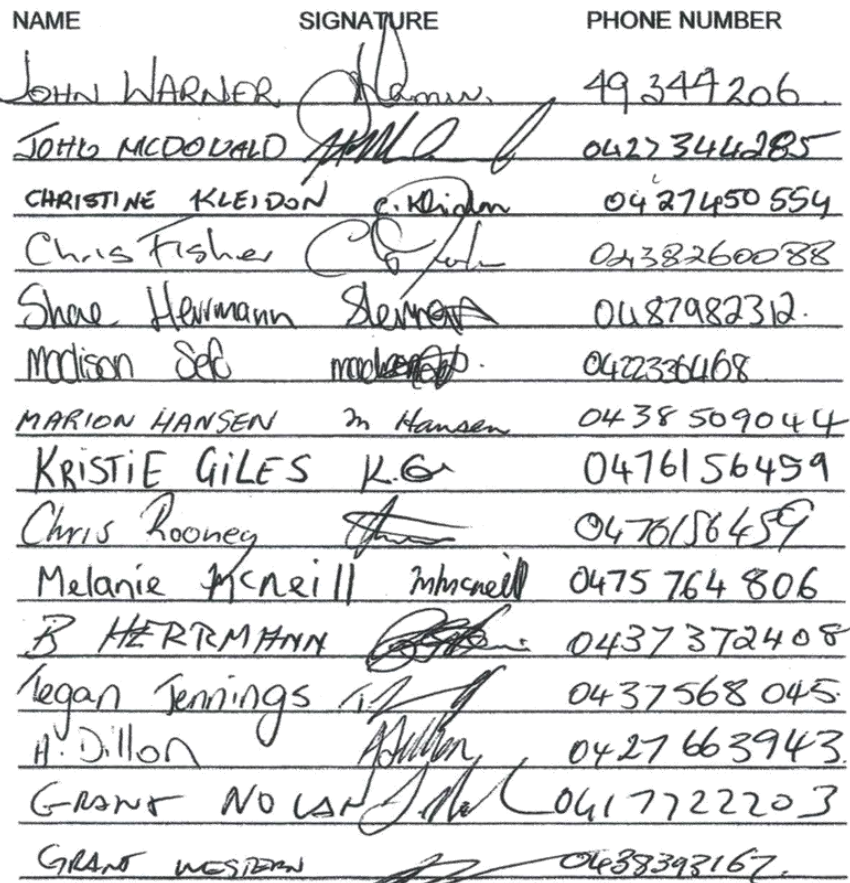 NAME SIGNATURE PHONE NUMBER
JOHN WARNER 49 344 206
JOHN MCDONALD 0427 344285
CHRISTINE KLEIDON C. Kleidon 0427450 554
Chris Fisher 0438260088
Shae Herrmann 0487982312.
Madison
MARION HANSEN M Hansen 0438 509044
KRISTIE GILES K.G 0476156459
Chris Rooney 0476156459
Melanie Mcneill MMcneill 0475 764 806
B HERRMANN 0437372408
Tegan Jennings 0437568 045
H. Dillon 0427 663943
GRANT NOLAN 0417722203
GRANT WESTERN 0438393167.